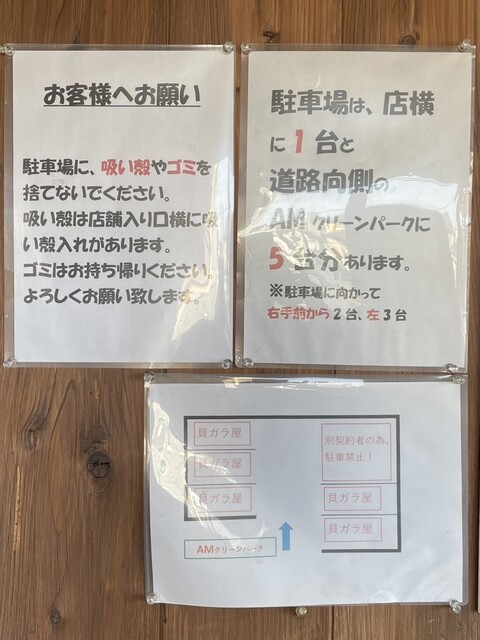 お客様へお願い
駐車場に、吸い殻やゴミを
捨てないでください。
吸い殻は店舗入り口横に吸
い殻入れがあります。
ゴミはお持ち帰りください。
よろしくお願い致します。
駐車場は、店横
に1台と
道路向側の
AMクリーンパークに
5台分あります。
※駐車場に向かって
右手前から2台、左3台
貝ガラ屋
貝ガラ屋
貝ガラ屋
別契約者の為、
駐車禁止！
貝ガラ屋
貝ガラ屋
AMクリーンパーク